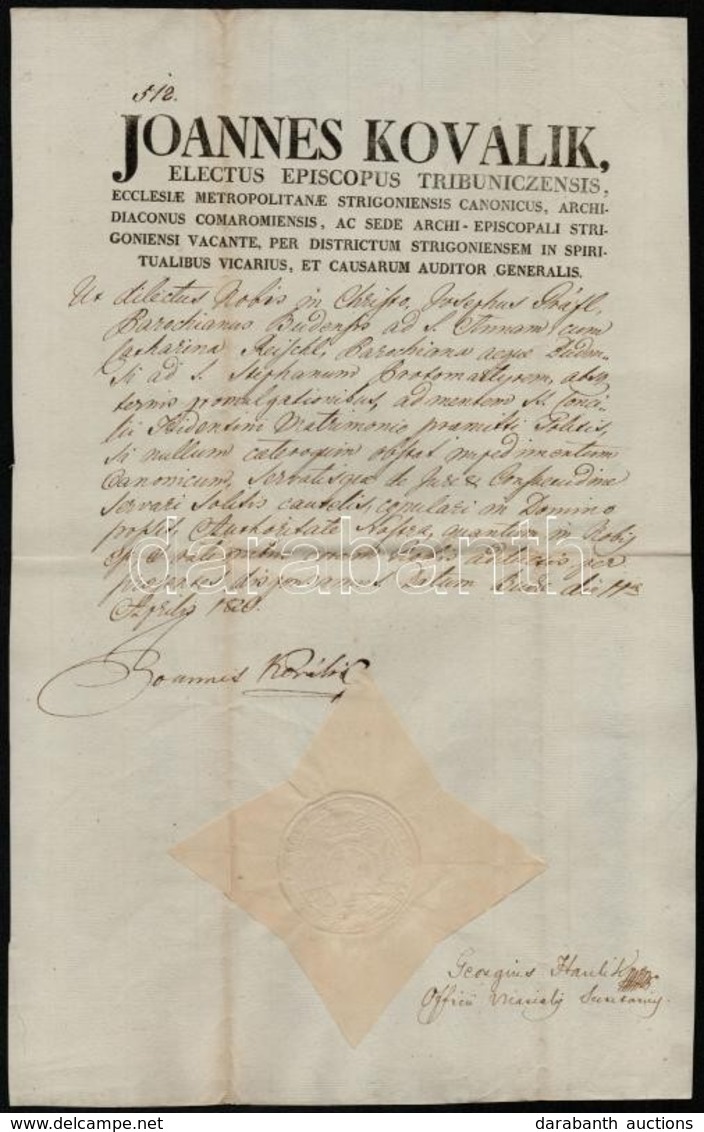 512.
JOANNES KOVALIK,
ELECTUS EPISCOPUS TRIBUNICZENSIS,
ECCLESIÆ METROPOLITANÆ STRIGONIENSIS CANONICUS, ARCHI-
DIACONUS COMAROMIENSIS, AC SEDE ARCHI-EPISCOPALI STRI-
GONIENSI VACANTE, PER DISTRICTUM STRIGONIENSEM IN SPIRI-
TUALIBUS VICARIUS, ET CAUSARUM AUDITOR GENERALIS.
Ut dilectus Nobis in Christo, Josephus Gráfl,
Parochianus Budensis ad S. Annam, cum
Catharina Reischl, Parochiana aeque Buden-
si ad S. Stephanum Protomartyrem, absq
ternis promulgationibus, ad mentem SS. Conci-
lii Tridentini Matrimonio praemitti Solitis,
Si nullum caeteroquin obstat impedimentum
Canonicum, Servatisque de Jure & Consvetudine
Servari Solitis cautelis, copulari in Domino
possit, Authoritate Nostra, quantum in Nobis
est, rationibus Nobis adductis per
praesentes dispensamus. Datum Budae die 11a
Aprilis 1820.
Joannes Kovalik
Georgius Haulik
Officii Vicarialis
darabanth
darabanth auctions